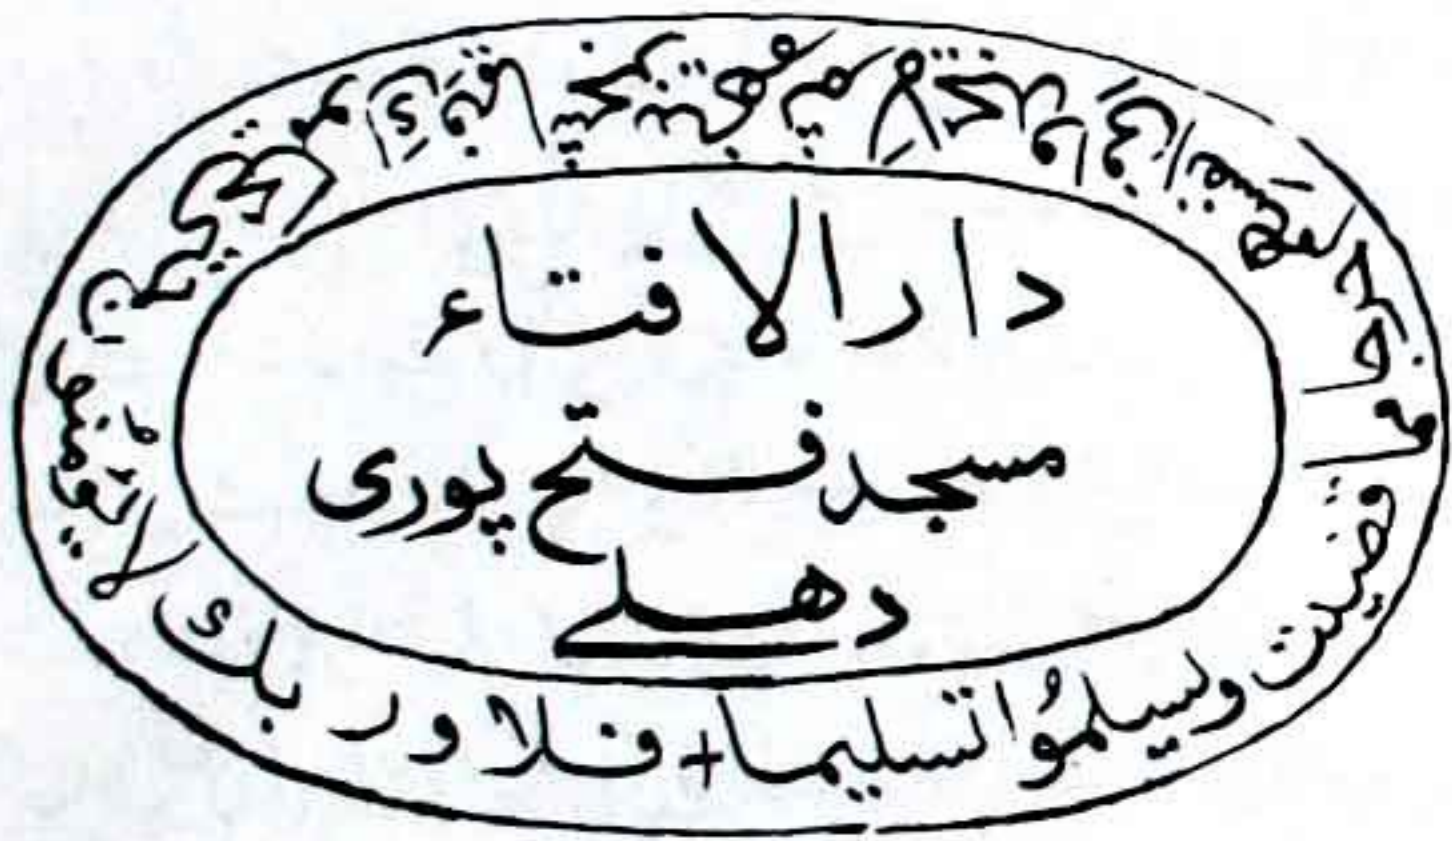 دارالافتاء
مسجد فتح پوری
دهلے
فلا وربك لا يؤمنون حتى يحكموك فيما شجر بينهم ثم لا يجدوا في انفسهم حرجا مما قضيت ويسلمُوا تسليما +